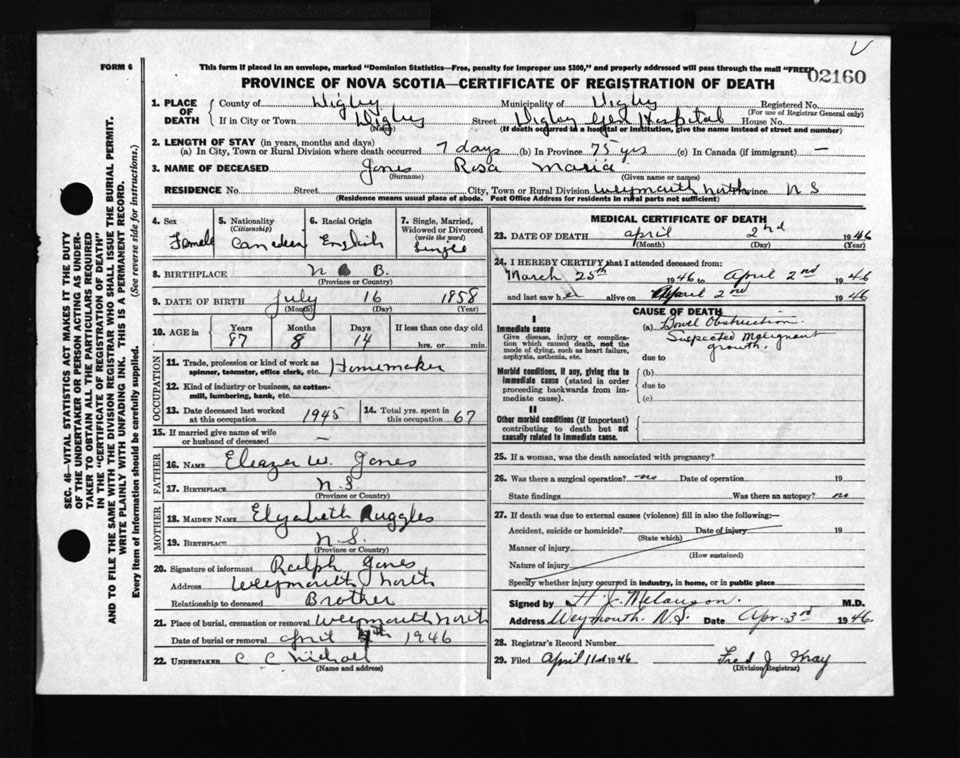 V
FORM 6
This form if placed in an envelope, marked "Dominion Statistics—Free, penalty for improper use $300," and properly addressed will pass through the mail "FREE"
02160
PROVINCE OF NOVA SCOTIA—CERTIFICATE OF REGISTRATION OF DEATH
SEC. 46—VITAL STATISTICS ACT MAKES IT THE DUTY
OF THE UNDERTAKER OR PERSON ACTING AS UNDER-
TAKER TO OBTAIN ALL THE PARTICULARS REQUIRED
IN THE "CERTIFICATE OF REGISTRATION OF DEATH"
AND TO FILE THE SAME WITH THE DIVISION REGISTRAR WHO SHALL ISSUE THE BURIAL PERMIT.
WRITE PLAINLY WITH UNFADING INK. THIS IS A PERMANENT RECORD.
Every item of information should be carefully supplied. (See reverse side for instructions.)
1. PLACE OF DEATH County of Digby Municipality of Digby Registered No.
(For use of Registrar General only)
If in City or Town Digby Street Digby Genl Hospital House No.
(Name) (If death occurred in a hospital or institution, give the name instead of street and number)
2. LENGTH OF STAY (in years, months and days)
(a) In City, Town or Rural Division where death occurred 7 days (b) In Province 75 yrs (c) In Canada (if immigrant) —
3. NAME OF DECEASED Jones Rosa Maria
(Surname) (Given name or names)
RESIDENCE No. Street City, Town or Rural Division Weymouth North Province N S
(Residence means usual place of abode. Post Office Address for residents in rural parts not sufficient)
4. Sex Female
5. Nationality (Citizenship) Canadian
6. Racial Origin English
7. Single, Married, Widowed or Divorced (write the word) Single
8. BIRTHPLACE N B.
(Province or Country)
9. DATE OF BIRTH July 16 1858
(Month) (Day) (Year)
10. AGE in Years 87 Months 8 Days 14 If less than one day old hrs. or min.
OCCUPATION
11. Trade, profession or kind of work as spinner, teamster, office clerk, etc. Homemaker
12. Kind of industry or business, as cotton-mill, lumbering, bank, etc.
13. Date deceased last worked at this occupation 1945
14. Total yrs. spent in this occupation 67
15. If married give name of wife or husband of deceased —
FATHER
16. NAME Eleazer W. Jones
17. BIRTHPLACE N.S.
(Province or Country)
MOTHER
18. MAIDEN NAME Elyabeth Ruggles
19. BIRTHPLACE N.S.
(Province or Country)
20. Signature of informant Ralph Jones
Address Weymouth North
Relationship to deceased Brother
21. Place of burial, cremation or removal Weymouth North
Date of burial or removal April 4th 1946
22. UNDERTAKER C C Nichols
(Name and address)
MEDICAL CERTIFICATE OF DEATH
23. DATE OF DEATH April 2nd 1946
(Month) (Day) (Year)
24. I HEREBY CERTIFY that I attended deceased from:
March 25th 1946 to April 2nd 1946
and last saw her alive on April 2nd 1946
CAUSE OF DEATH
I
Immediate cause
Give disease, injury or complication which caused death, not the mode of dying, such as heart failure, asphyxia, asthenia, etc.
(a) Bowel Obstruction.
Suspected Malignant
growth.
due to
Morbid conditions, if any, giving rise to immediate cause (stated in order proceeding backwards from immediate cause).
(b)
due to
(c)
II
Other morbid conditions (if important) contributing to death but not causally related to immediate cause.
25. If a woman, was the death associated with pregnancy?
26. Was there a surgical operation? no Date of operation 19
State findings Was there an autopsy? no
27. If death was due to external causes (violence) fill in also the following:—
Accident, suicide or homicide? Date of injury 19
(State which)
Manner of injury
(How sustained)
Nature of injury
Specify whether injury occurred in industry, in home, or in public place
Signed by H J Melanson. M.D.
Address Weymouth. N.S. Date Apr. 3rd 1946
28. Registrar's Record Number
29. Filed April 11th 1946 Fred J
(Division Registrar)